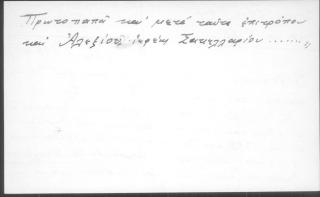 Πρωτοπαπᾶ καί μετά ταῦτα ἐπιτρόπου
καί Ἀλεξίου ἱερέως Σακελλαρίου ........."